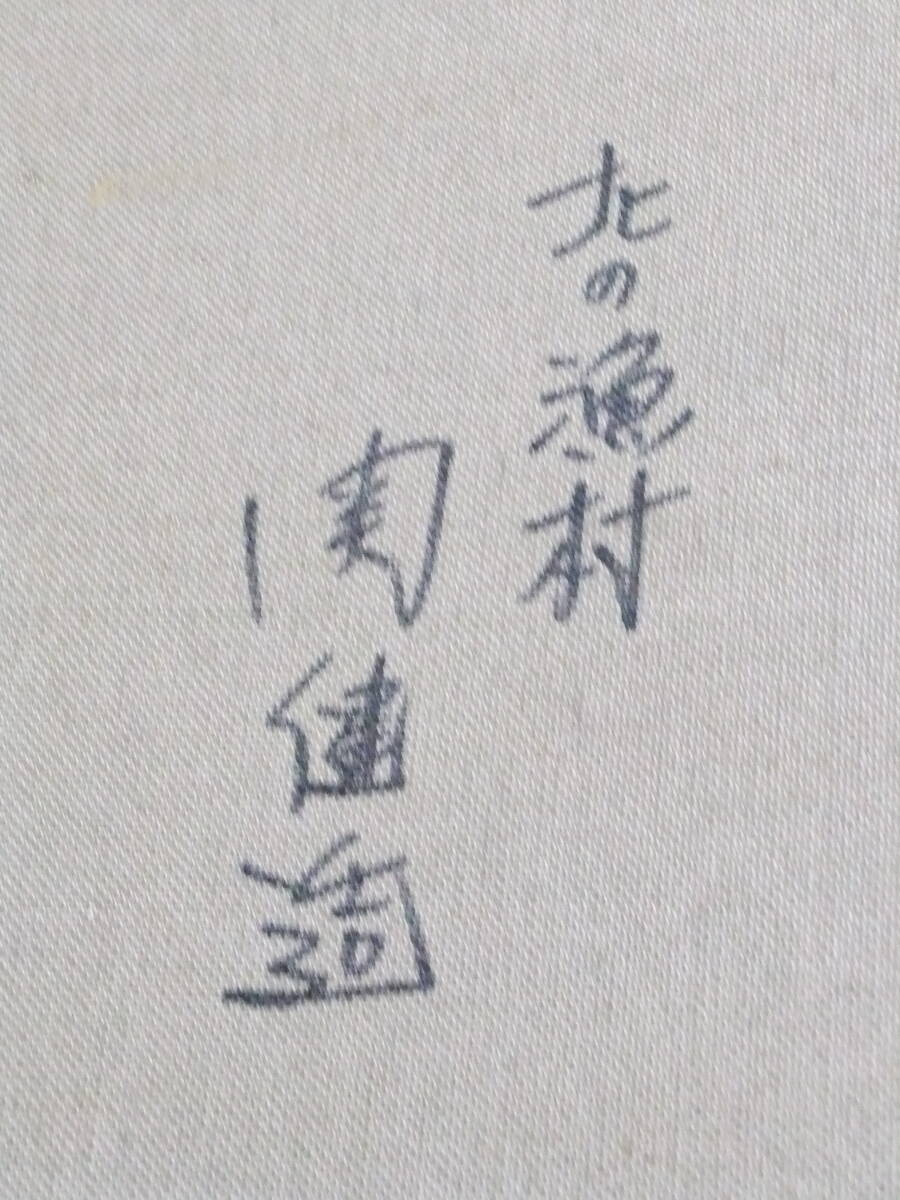 北の漁村
関健造